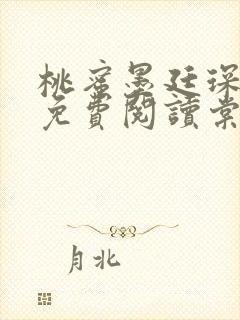 桃蜜墨廷琛
免費閱讀棠
月北